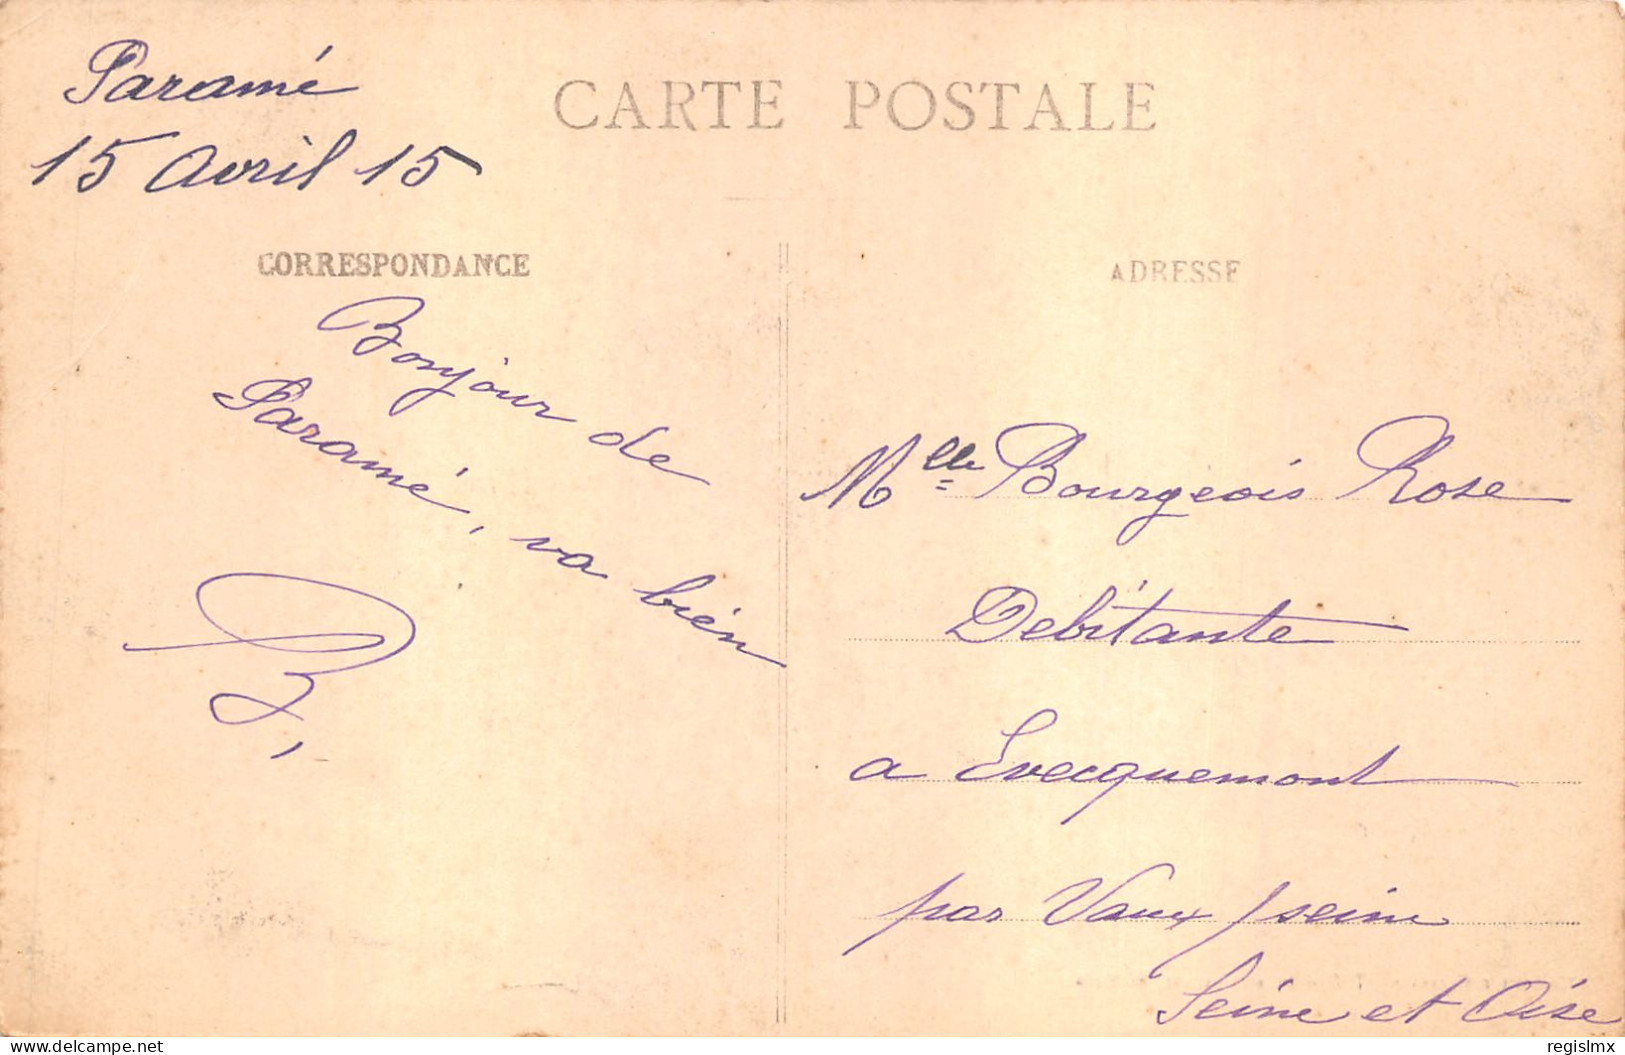 Paramé
15 Avril 15
CARTE POSTALE
CORRESPONDANCE
ADRESSE
Bonjour de
Paramé, va bien
B,
Mlle Bourgeois Rose
Debitante
a Evecquemont
par Vaux s/seine
Seine et Oise
www.delcampe.net
regislmx